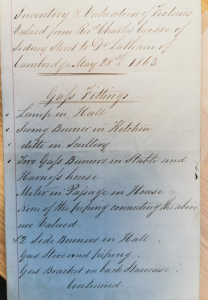 Inventory & Valuation of Fixtures
Valued from Revd Charles Crosse of
Sidney Street to Dr Latham of
Cambridge May 28th 1863
Gass Fittings
Lamp in Hall
Swing Burner in Kitchen
ditto in Scullery
Two Gass Burners in Stable and
Harness house
Meter in Passage in House
None of the piping connecting the above
are Valued
2 Side Burners in Hall
Gas Stove and piping
Gas Bracket on back Staircase
Continued